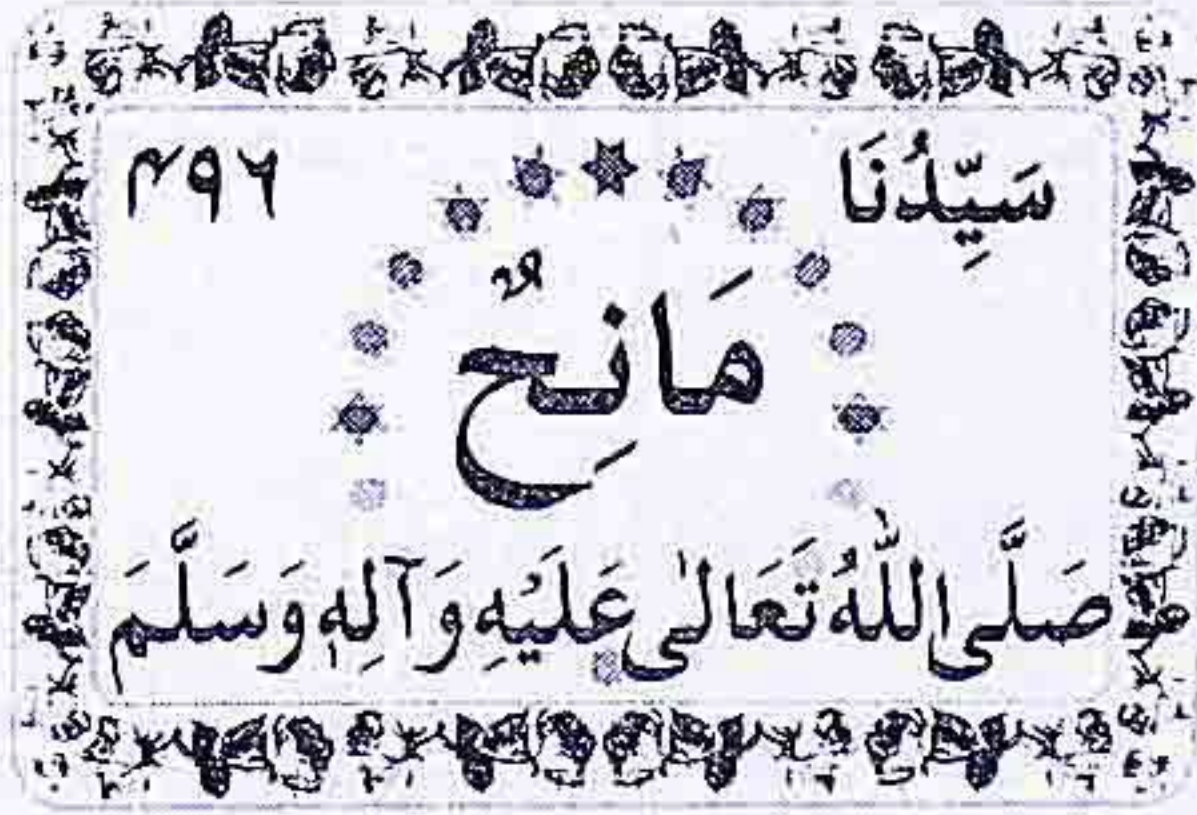 سَيِّدُنَا ۴۹۶
مَانِحٌ
صَلَّى اللّٰهُ تَعَالىٰ عَلَيْهِ وَآلِهٖ وَسَلَّمَ